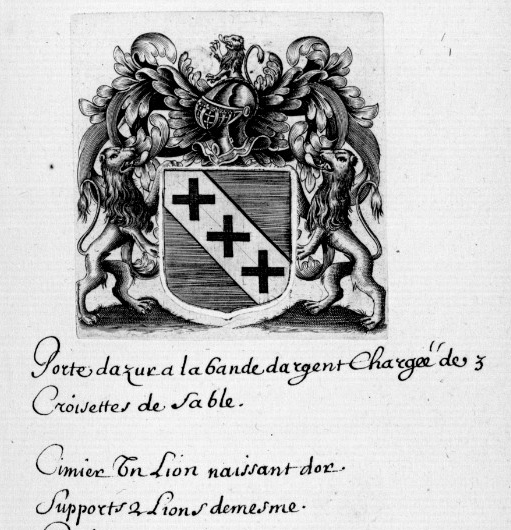 Porte dazur a la bande dargent Chargeé de 3
Croisettes de Sable.
Cimier Un Lion naissant dor.
Supports 2 Lions demesme.